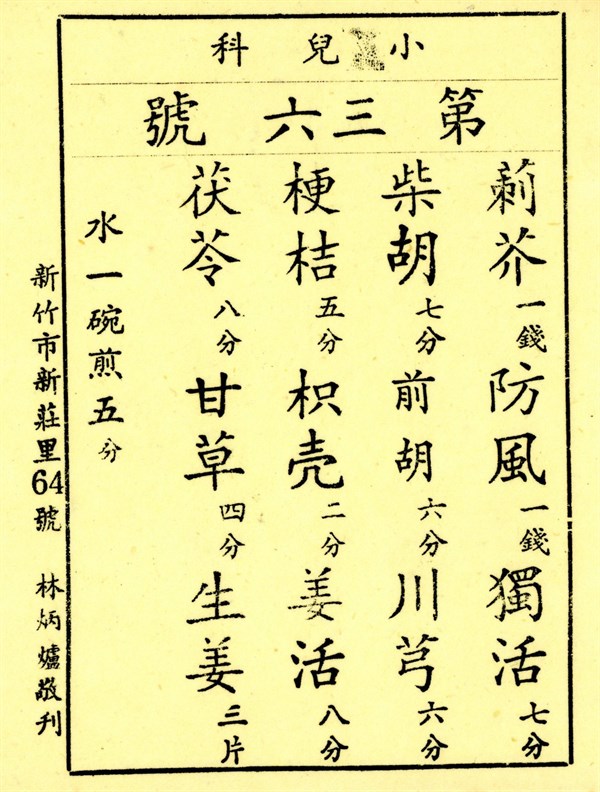 小兒科
第三六號
莿芥一錢防風一錢獨活七分
柴胡七分前胡六分川芎六分
梗桔五分枳壳二分姜活八分
茯苓八分甘草四分生姜三片
水一碗煎五分
新竹市新莊里64號 林炳爐敬刊